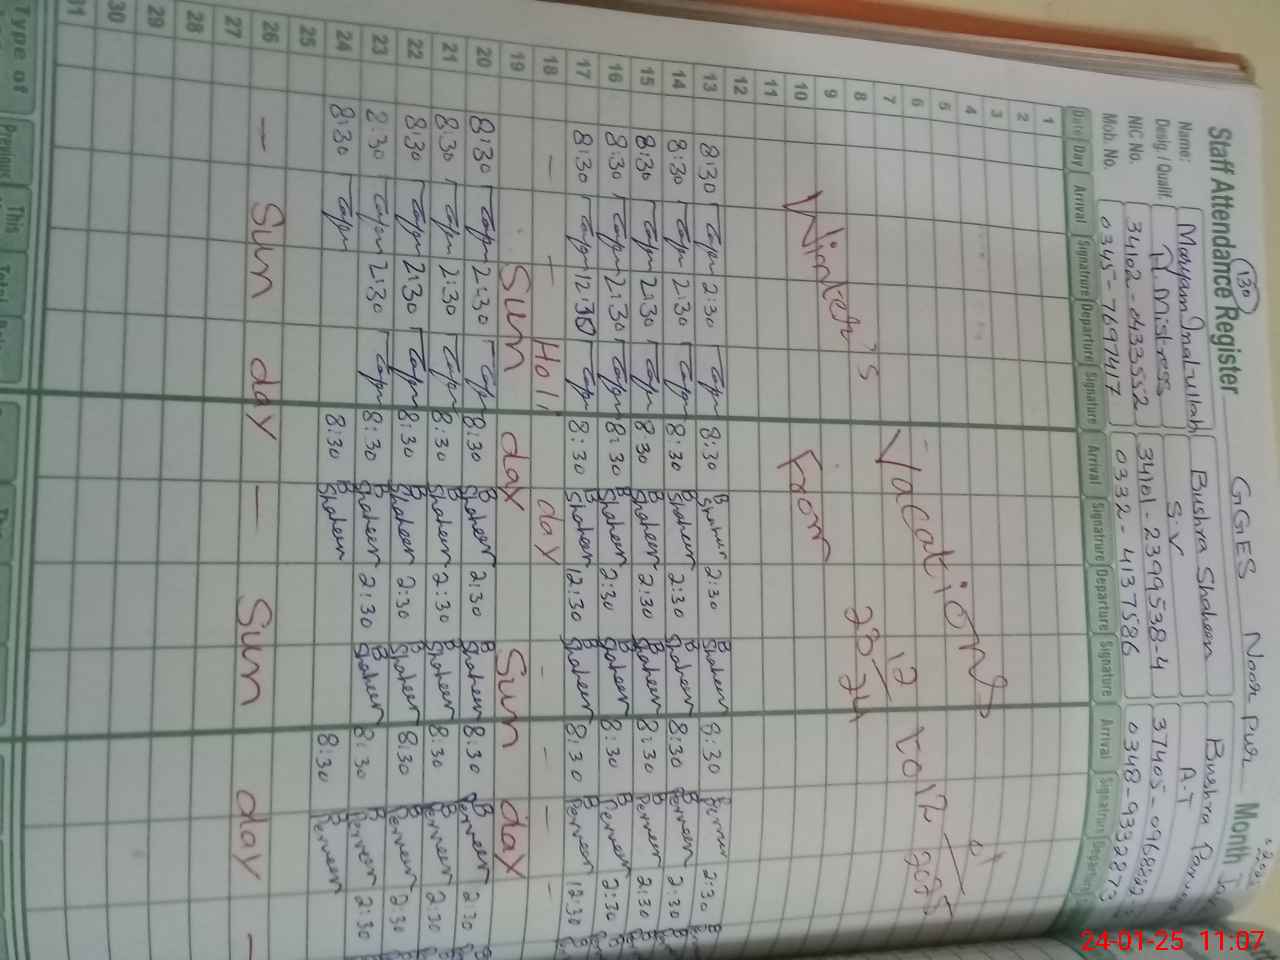 130
Staff Attendance Register GGES Noor pur Month
Name: Maryam Inaitullah Bushra Shaheen Bushra
Desig. / Qualif. Mistress S.V A.T
NIC No. 34102-0433555 34101-2399538-4 37405-09688
Mob. No. 0345-7697417 0332-4137586 0348-9332873
Date/Day Arrival Signature Departure Signature Arrival Signatrure Departure Signature Arrival Signatrure
1
2
3
4
5
6
7
8
9
10
11
12
Winter's Vacations
From 23/12 24 to 12/01 2025
13 8:30 2:30 8:30 B Shaheen 2:30 B Shaheen 8:30 B Perveen 2:30
14 8:30 2:30 8:30 B Shaheen 2:30 B Shaheen 8:30 B Perveen 2:30
15 8:30 2:30 8:30 B Shaheen 2:30 B Shaheen 8:30 B Perveen 2:30
16 8:30 2:30 8:30 B Shaheen 2:30 B Shaheen 8:30 B Perveen 2:30
17 8:30 12:30 8:30 B Shaheen 12:30 B Shaheen 8:30 B Perveen 12:30
18 - - Holi day - - - -
19 Sun day Sun day
20 8:30 2:30 8:30 B Shaheen 2:30 B Shaheen 8:30 B Perveen 2:30
21 8:30 2:30 8:30 B Shaheen 2:30 B Shaheen 8:30 B Perveen 2:30
22 8:30 2:30 8:30 B Shaheen 2:30 B Shaheen 8:30 B Perveen 2:30
23 8:30 2:30 8:30 B Shaheen 2:30 B Shaheen 8:30 B Perveen 2:30
24 8:30 8:30 B Shaheen 8:30 B Perveen
25
26 - Sun day - Sun day -
27
28
29
30
31
Type of Previous This Total
24-01-25 11:07